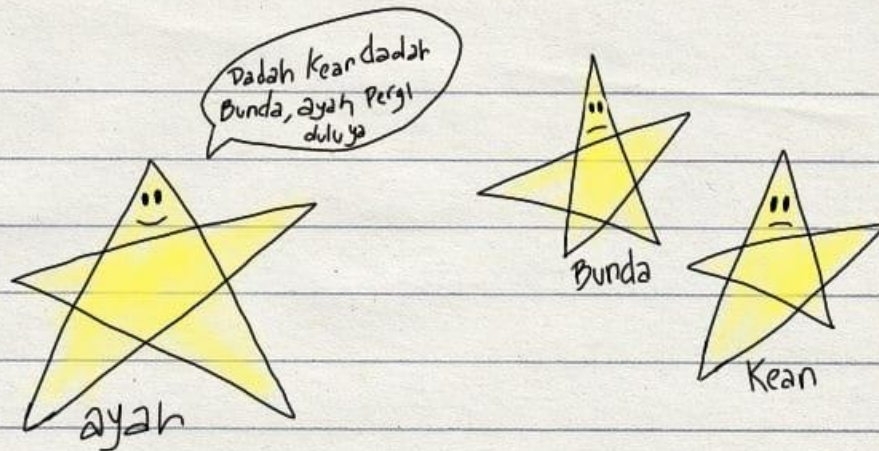 Dadah Kean dadah
Bunda, ayah Pergi
dulu ya
Bunda
Kean
ayah